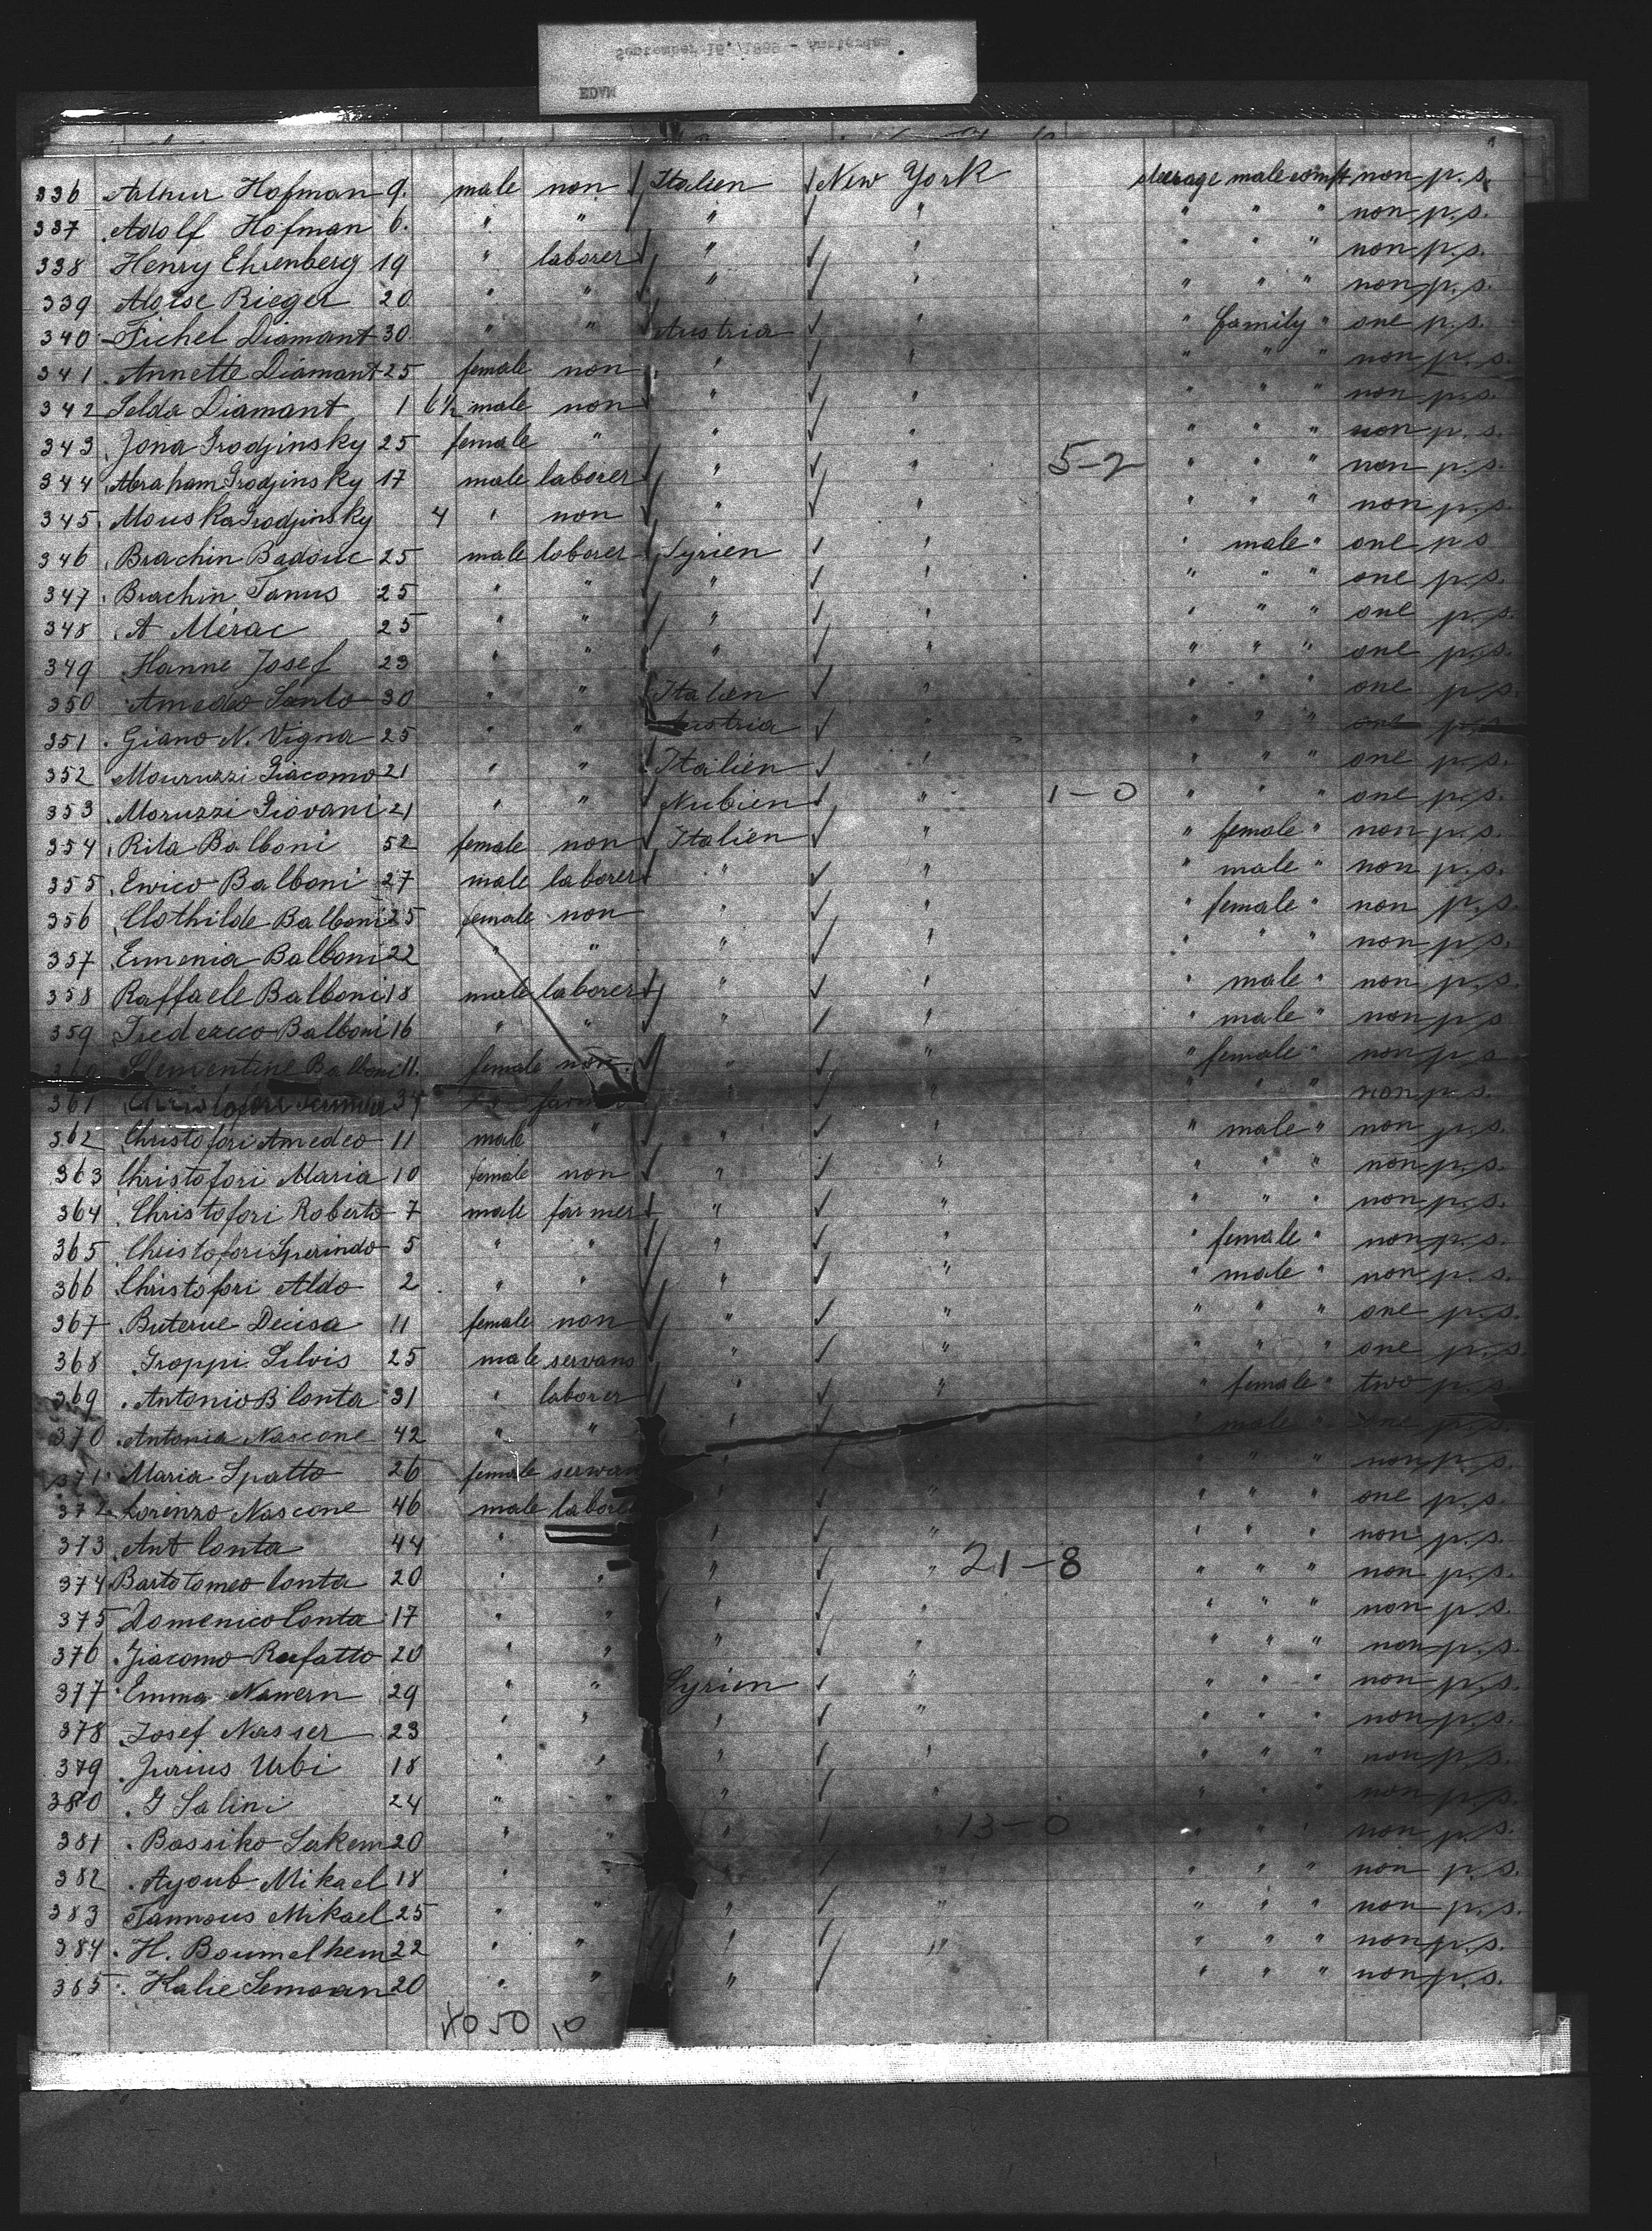 September 16, 1889 - Amsterdam
EDAM
336 Arthur Hofman 9. male non Italien New York steerage male compt non p.s.
337 Adolf Hofman 6. " " " " " " " non p.s.
338 Henry Ehrenberg 19 " laborer " " " " " non p.s.
339 Aloise Rieger 20 " " " " " " " non p.s.
340 Fichel Diamant 30 " " Austria " " family " one p.s.
341 Annette Diamant 25 female non " " " " " non p.s.
342 Selda Diamant 1 6½ male non " " " " " non p.s.
343 Jona Grodjinsky 25 female " " " " " " non p.s.
344 Abraham Grodjinsky 17 male laborer " " 5-2 " " " non p.s.
345 Mouska Grodjinsky 4 " non " " " " " non p.s.
346 Brachin Badouc 25 male laborer Syrien " " male " one p.s
347 Brachin Tanus 25 " " " " " " " one p.s.
348 A Mérac 25 " " " " " " " one p.s.
349 Hanne Josef 23 " " " " " " " one p.s.
350 Amedeo Santo 30 " " Italien " " " " one p.s.
351 Giano N. Vigna 25 " " Austria " " " " one p.s.
352 Mouruzzi Giacomo 21 " " Italien " " " " one p.s.
353 Moruzzi Giovani 21 " " Nubien " 1-0 " " " one p.s.
354 Rita Balboni 52 female non Italien " " female " non p.s.
355 Enrico Balboni 27 male laborer " " " male " non p.s.
356 Clothilde Balboni 25 female non " " " female " non p.s.
357 Eumenia Balboni 22 " " " " " " " non p.s.
358 Raffaele Balboni 18 male laborer " " " male " non p.s.
359 Frederico Balboni 16 " " " " " male " non p.s
360 Clementine Balboni 11. female non " " " female " non p.s
361 Christofori 34 " " " " " non p.s.
362 Christofori Amedeo 11 male " " " " male " non p.s.
363 Christofori Maria 10 female non " " " " " non p.s.
364 Christofori Roberto 7 male farmer " " " " " non p.s.
365 Christofori Sperindo 5 " " " " " female " non p.s.
366 Christofori Aldo 2 " " " " " male " non p.s.
367 Buterue Decisa 11 female non " " " " " one p.s.
368 Groppi Silvis 25 male servans " " " " " one p.s.
369 Antonio B Conta 31 " laborer " " " female " two p.s
370 Antonia Nascone 42 " " " " " male " one p.s.
371 Maria Spatto 26 female servan " " " " " non p.s.
372 Lorenzo Nascone 46 male labore " " " " " one p.s.
373 Ant Conta 44 " " " " " " non p.s.
374 Bartotomeo Conta 20 " " " " 21-8 " " " non p.s.
375 Domenico Conta 17 " " " " " " " non p.s.
376 Giacomo Rafatto 20 " " " " " " " non p.s.
377 Emma Nawern 29 " " Syrien " " " " non p.s.
378 Josef Nasser 23 " " " " " " " non p.s.
379 Jurius Urbi 18 " " " " " " " non p.s.
380 G Salini 24 " " " " " " " non p.s.
381 Bassiko Sakem 20 " " " 13-0 " " " non p.s.
382 Ayoub Mikael 18 " " " " " " " non p.s.
383 Tannous Mikael 25 " " " " " " " non p.s.
384 H. Boumelhem 22 " " " " " " " non p.s.
385 Kalie Semaan 20 " " " " " " non p.s.
40 50 10